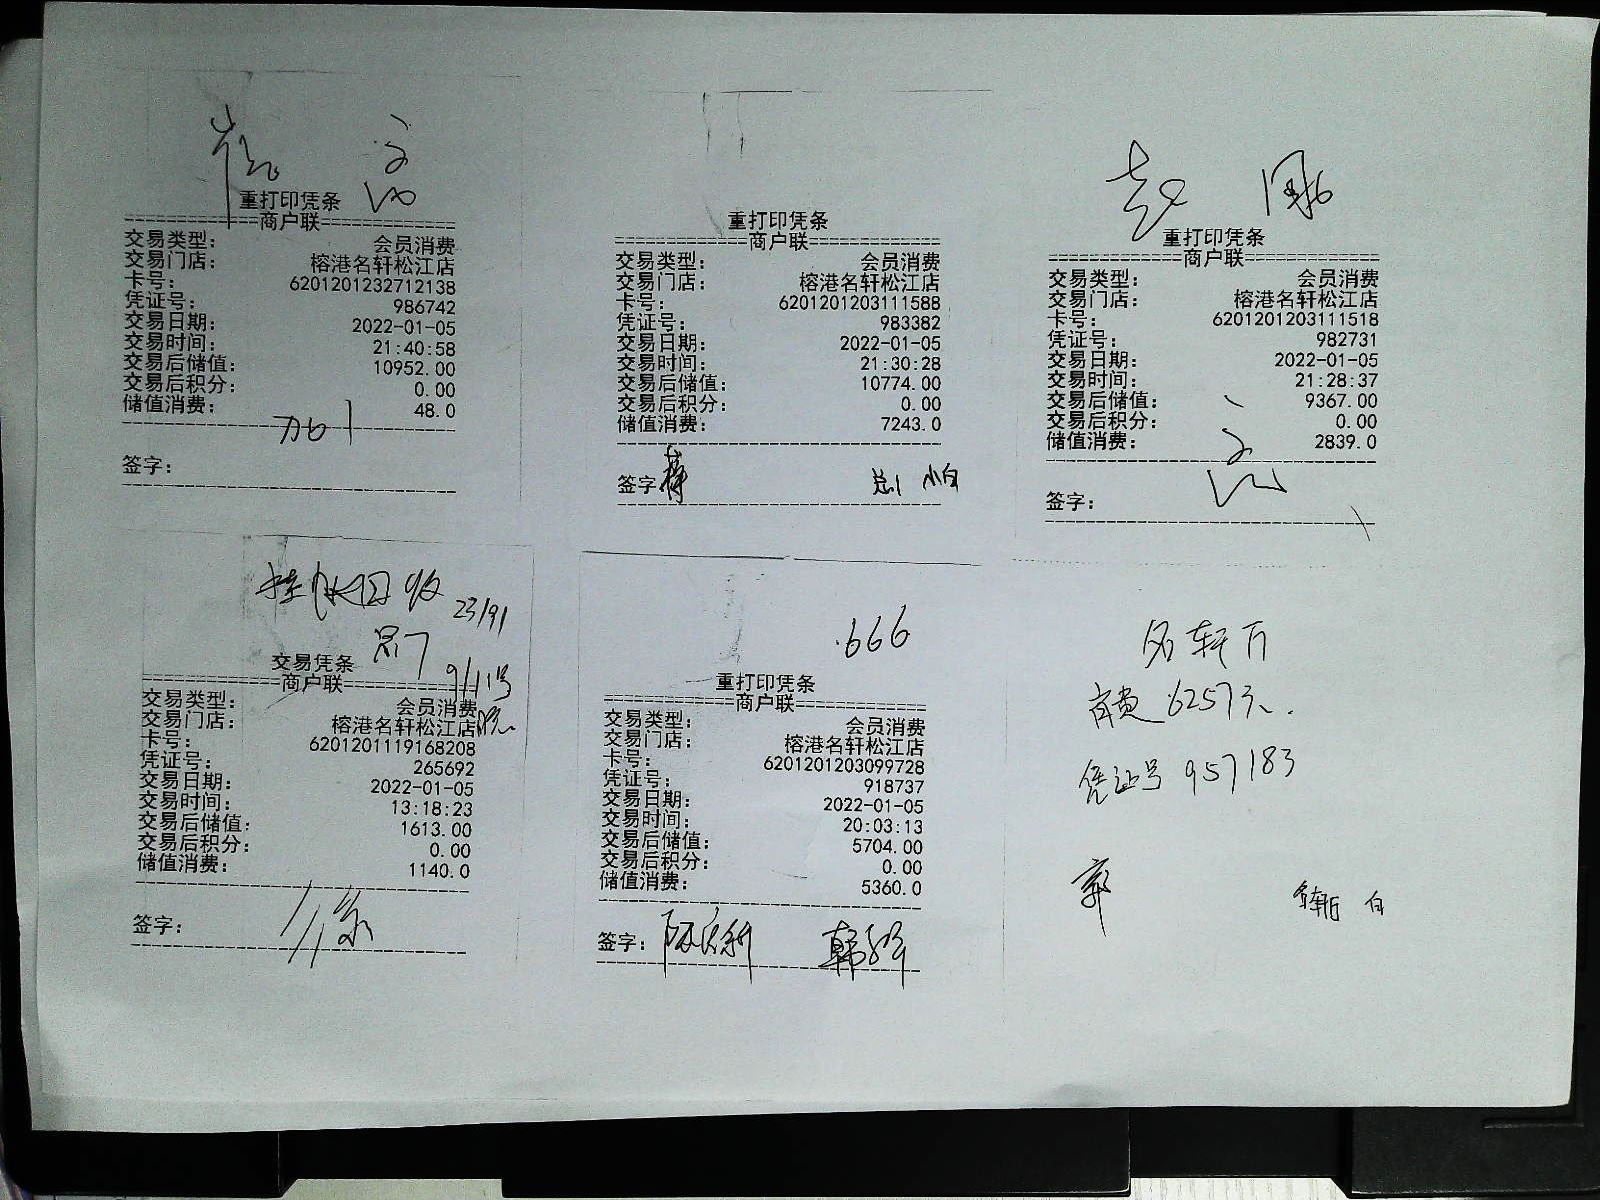 重打印凭条
==========商户联==========
交易类型: 会员消费
交易门店: 榕港名轩松江店
卡号: 6201201232712138
凭证号: 986742
交易日期: 2022-01-05
交易时间: 21:40:58
交易后储值: 10952.00
交易后积分: 0.00
储值消费: 48.0
签字:
重打印凭条
==========商户联==========
交易类型: 会员消费
交易门店: 榕港名轩松江店
卡号: 6201201203111588
凭证号: 983382
交易日期: 2022-01-05
交易时间: 21:30:28
交易后储值: 10774.00
交易后积分: 0.00
储值消费: 7243.0
签字
重打印凭条
==========商户联==========
交易类型: 会员消费
交易门店: 榕港名轩松江店
卡号: 6201201203111518
凭证号: 982731
交易日期: 2022-01-05
交易时间: 21:28:37
交易后储值: 9367.00
交易后积分: 0.00
储值消费: 2839.0
签字:
23/91
交易凭条
==========商户联==========
交易类型: 会员消费
交易门店: 榕港名轩松江店
卡号: 6201201119168208
凭证号: 265692
交易日期: 2022-01-05
交易时间: 13:18:23
交易后储值: 1613.00
交易后积分: 0.00
储值消费: 1140.0
签字:
666
重打印凭条
==========商户联==========
交易类型: 会员消费
交易门店: 榕港名轩松江店
卡号: 6201201203099728
凭证号: 918737
交易日期: 2022-01-05
交易时间: 20:03:13
交易后储值: 5704.00
交易后积分: 0.00
储值消费: 5360.0
签字:
名轩
消费 6257元.
凭证号 957183